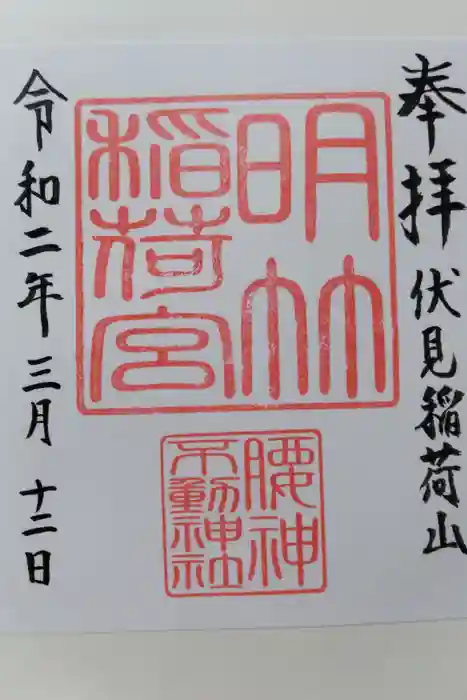 奉拝 伏見稲荷山
明
稲荷宮
腰神
不動神社
令和二年三月十二日